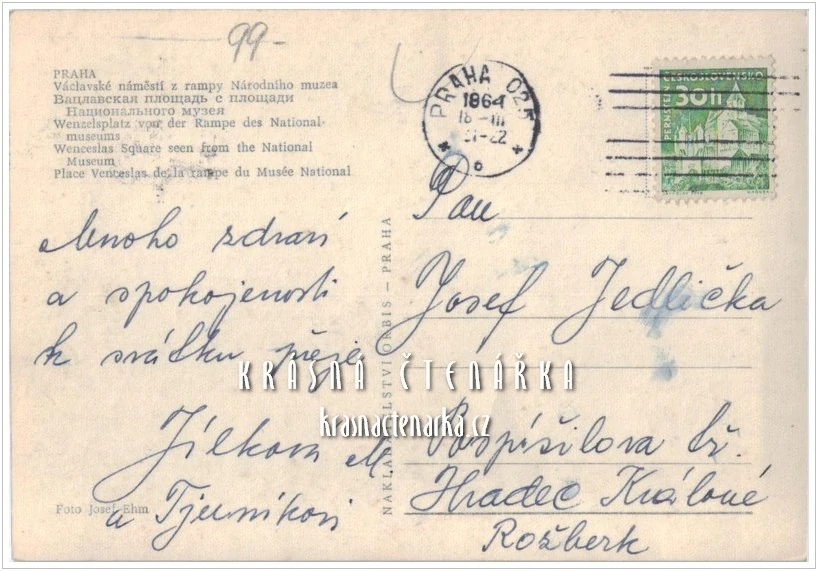 99-
PRAHA
Václavské náměstí z rampy Národního muzea
Вацлавская площадь с площади
Национального музея
Wenzelsplatz von der Rampe des National-
museums
Wenceslas Square seen from the National
Museum
Place Venceslas de la rampe du Musée National
Mnoho zdraví
a spokojenosti
k svátku přeje
Jílkova M.
a
Foto Josef Ehm
NAKLADATELSTVÍ ORBIS – PRAHA
PRAHA 02
1964
18 -III
-22
ČESKOSLOVENSKO
30 h
PERNŠTEJN
Pan
Josef Jedlička
Pospíšilova tř.
Hradec Králové
Rožberk
KRÁSNÁ ČTENÁŘKA
krasnactenarka.cz